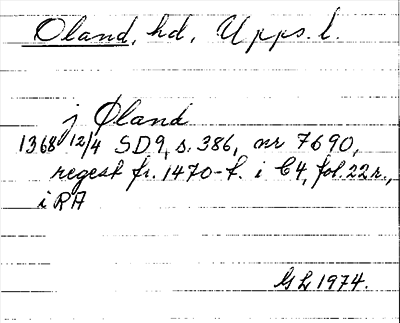 Oland, hd, Upps. l.
j Øland
1368 12/4 SD9, s. 386, nr 7690,
regest fr. 1470-t. i C4, fol. 22r.,
i RA
GL 1974.